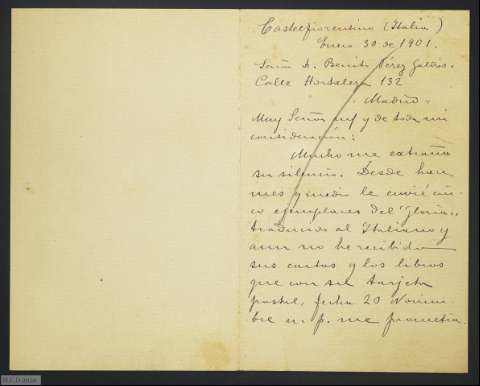 Castelfiorentino (Italia)
Enero 30 de 1901.
Señor D. Benito Perez Galdós.
Calle Hortaleza 132
Madrid.
Muy Señor mio y de toda mi
consideración:
Mucho me extraña
su silencio. Desde hace
mes y medio le envié cin-
co ejemplares del "Gloria",
traducido al Italiano y
aun no he recibido
sus cartas y los libros
que con su tarjeta
postal, fecha 20 Noviem-
bre u. p. me prometia.